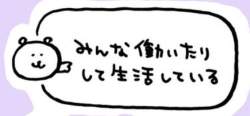 みんな働いたり
して生活している